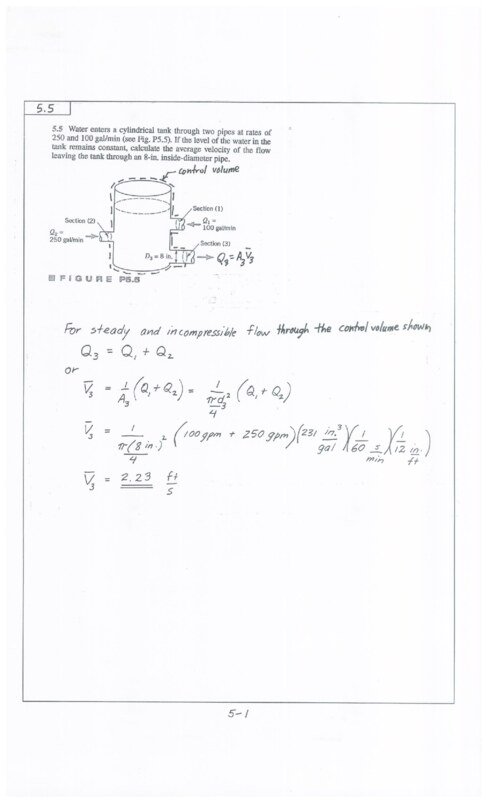 5.5
5.5 Water enters a cylindrical tank through two pipes at rates of
250 and 100 gal/min (see Fig. P5.5). If the level of the water in the
tank remains constant, calculate the average velocity of the flow
leaving the tank through an 8-in. inside-diameter pipe.
control volume
Section (1)
Section (2)
Q₁ =
100 gal/min
Q₂ =
250 gal/min
Section (3)
D₃ = 8 in.
Q₃ = A₃V̅₃
FIGURE P5.5
For steady and incompressible flow through the control volume shown
Q₃ = Q₁ + Q₂
or
V̅₃ = 1/A₃ (Q₁ + Q₂) = 1/(πd₃²/4) (Q₁ + Q₂)
V̅₃ = 1/(π(8 in.)²/4) (100 gpm + 250 gpm)(231 in.³/gal)(1/60 s/min)(1/12 in./ft)
V̅₃ = 2.23 ft/s
5-1